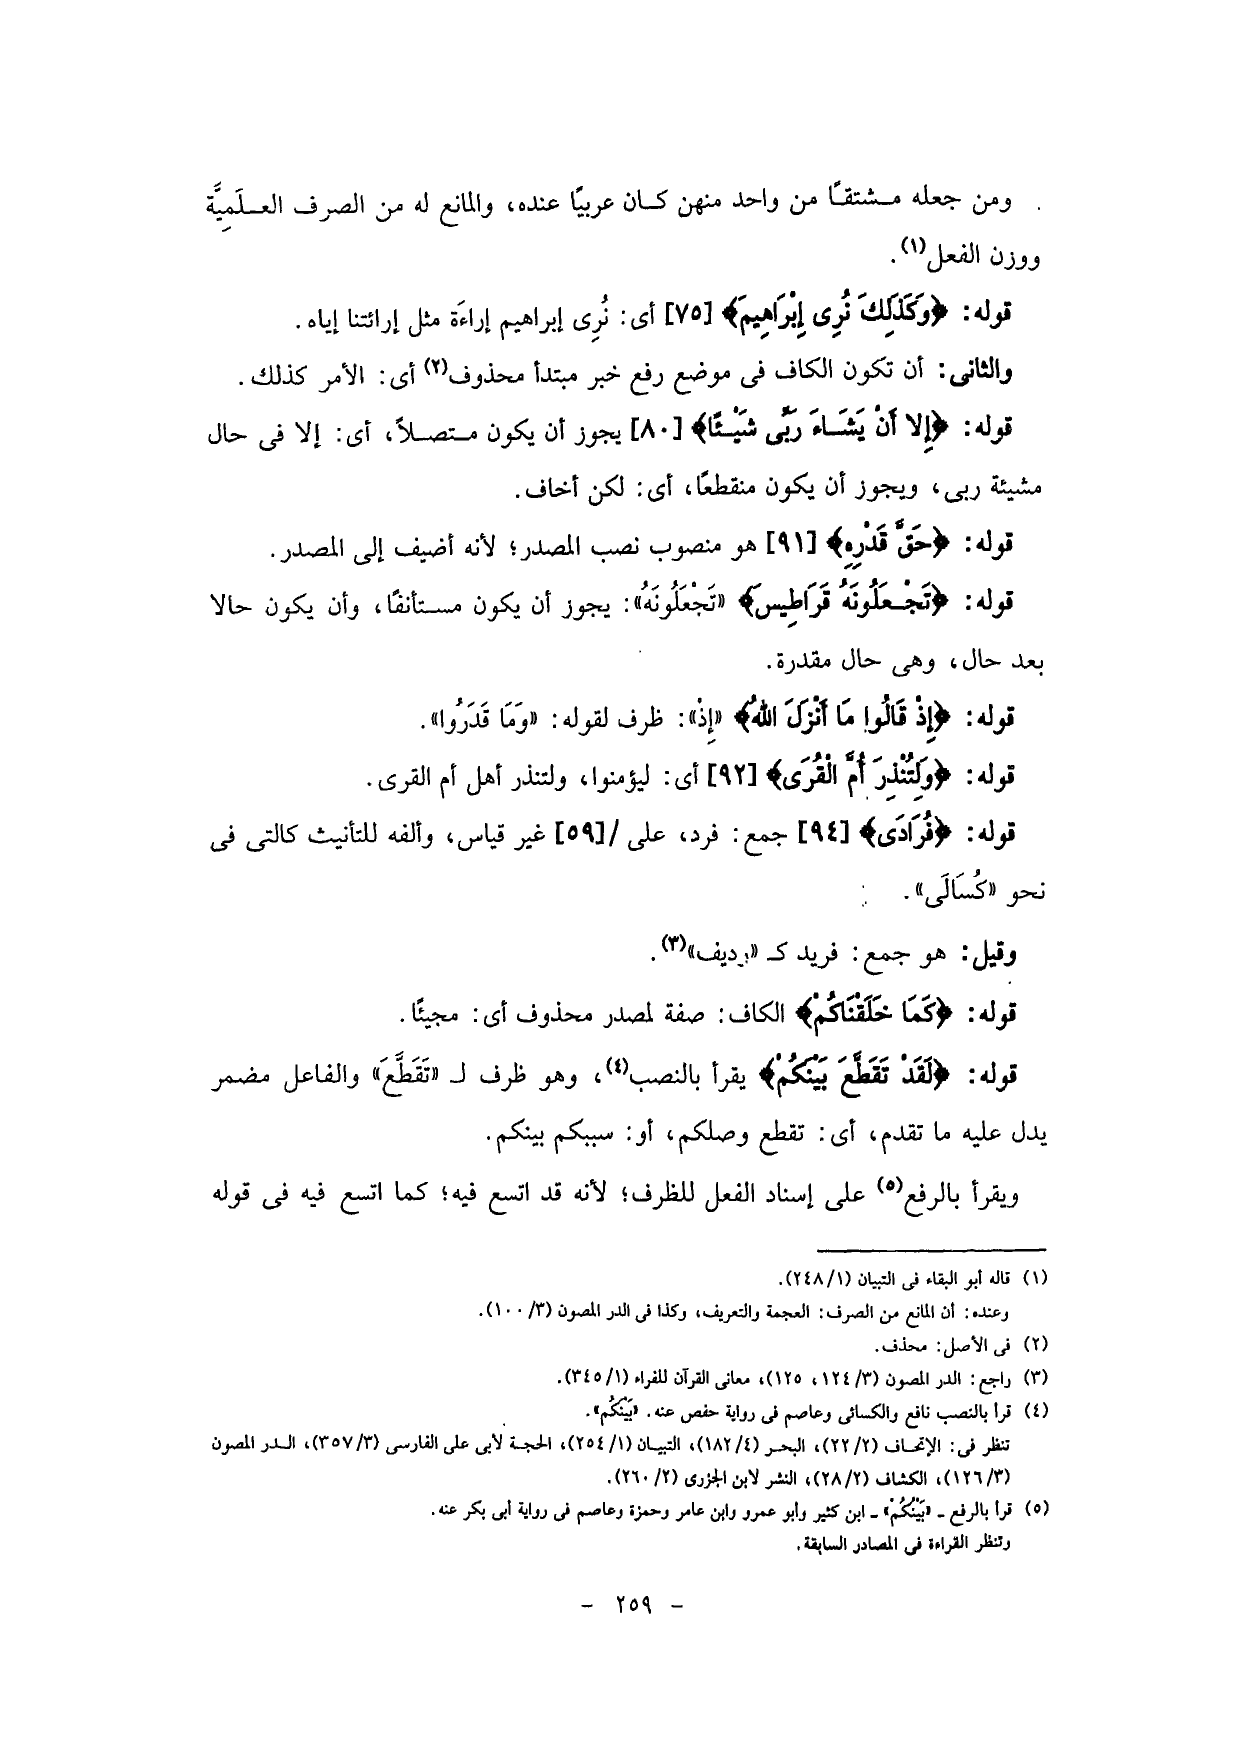 ومن جعله مشتقًا من واحد منهن كان عربيًا عنده، والمانع له من الصرف العلَمِيَّة
ووزن الفعل(١).
قوله: ﴿وَكَذَلِكَ نُرِى إِبْرَاهِيمَ﴾ [٧٥] أى: نُرِى إبراهيم إراءَة مثل إرائتنا إياه.
والثانى: أن تكون الكاف فى موضع رفع خبر مبتدأ محذوف(٢) أى: الأمر كذلك.
قوله: ﴿إِلا أَنْ يَشَاءَ رَبِّى شَيْئًا﴾ [٨٠] يجوز أن يكون متصلاً، أى: إلا فى حال
مشيئة ربى، ويجوز أن يكون منقطعًا، أى: لكن أخاف.
قوله: ﴿حَقَّ قَدْرِهِ﴾ [٩١] هو منصوب نصب المصدر؛ لأنه أضيف إلى المصدر.
قوله: ﴿تَجْعَلُونَهُ قَرَاطِيسَ﴾ «تَجْعَلُونَهُ»: يجوز أن يكون مستأنفًا، وأن يكون حالا
بعد حال، وهى حال مقدرة.
قوله: ﴿إِذْ قَالُوا مَا أَنْزَلَ اللهُ﴾ «إِذْ»: ظرف لقوله: «وَمَا قَدَرُوا».
قوله: ﴿وَلِتُنْذِرَ أُمَّ الْقُرَى﴾ [٩٢] أى: ليؤمنوا، ولتنذر أهل أم القرى.
قوله: ﴿فُرَادَى﴾ [٩٤] جمع: فرد، على /[٥٩] غير قياس، وألفه للتأنيث كالتى فى
نحو «كُسَالَى».
وقيل: هو جمع: فريد كـ «رديف»(٣).
قوله: ﴿كَمَا خَلَقْنَاكُمْ﴾ الكاف: صفة لمصدر محذوف أى: مجيئًا.
قوله: ﴿لَقَدْ تَقَطَّعَ بَيْنَكُمْ﴾ يقرأ بالنصب(٤)، وهو ظرف لـ «تَقَطَّعَ» والفاعل مضمر
يدل عليه ما تقدم، أى: تقطع وصلكم، أو: سببكم بينكم.
ويقرأ بالرفع(٥) على إسناد الفعل للظرف؛ لأنه قد اتسع فيه؛ كما اتسع فيه فى قوله
(١) قاله أبو البقاء فى التبيان (٢٤٨/١).
وعنده: أن المانع من الصرف: العجمة والتعريف، وكذا فى الدر المصون (١٠٠/٣).
(٢) فى الأصل: محذف.
(٣) راجع: الدر المصون (١٢٤/٣، ١٢٥)، معانى القرآن للفراء (٣٤٥/١).
(٤) قرأ بالنصب نافع والكسائى وعاصم فى رواية حفص عنه. «بَيْنَكُم».
تنظر فى: الإتحاف (٢٢/٢)، البحر (١٨٢/٤)، التبيان (٢٥٤/١)، الحجة لأبى على الفارسى (٣٥٧/٣)، الدر المصون
(١٢٦/٣)، الكشاف (٢٨/٢)، النشر لابن الجزرى (٢٦٠/٢).
(٥) قرأ بالرفع ـ «بَيْنُكُمْ» ـ ابن كثير وأبو عمرو وابن عامر وحمزة وعاصم فى رواية أبى بكر عنه.
وتنظر القراءة فى المصادر السابقة.
- ٢٥٩ -